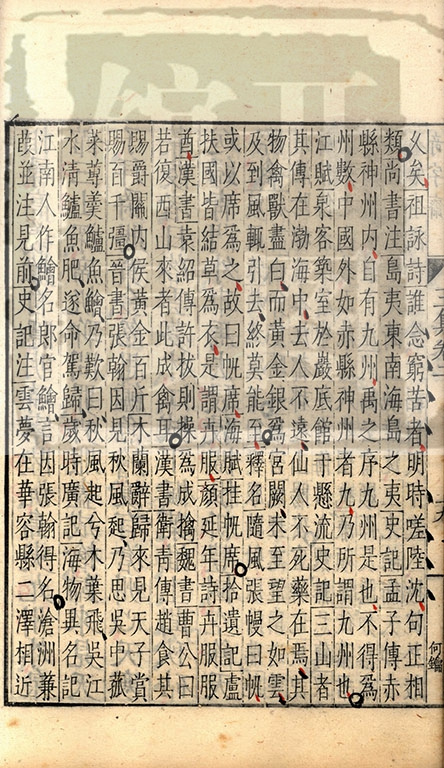 乆矣祖詠詩誰念窮苦者明時嗟陸沈句正相
類尚書注島夷東南海島之夷史記孟子傳赤
縣神州內自有九州禹之序九州是也不得爲
州數中國外如赤縣神州者九乃所謂九州也
江賦泉客築室於巖底館于懸流史記三山者
其傳在渤海中去人不遠仙人不死藥在焉其
物禽獸盡白而黃金銀爲宮闕未至望之如雲
及到風輒引去終莫能至釋名隨風張幔曰帆
或以席爲之故曰帆席海賦挂帆席拾遺記盧
扶國皆結草爲衣是謂卉服顏延年詩卉服服
酋漢書袁紹傳許拔則操爲成擒魏書曹公曰
若復西山來者此成禽耳漢書衛青傳趙食其
賜爵關內侯黃金百斤木蘭辭歸來見天子賞
賜百千彊晉書張翰因見秋風起乃思吳中菰
菜蓴羹鱸魚鱠乃歎曰秋風起兮木葉飛吳江
水清鱸魚肥遂命駕歸歲時廣記海物異名記
江南人作鱠名郎官鱠言因張翰得名滄洲蒹
葭並注見前史記注雲夢在華容縣二澤相近
何鑰